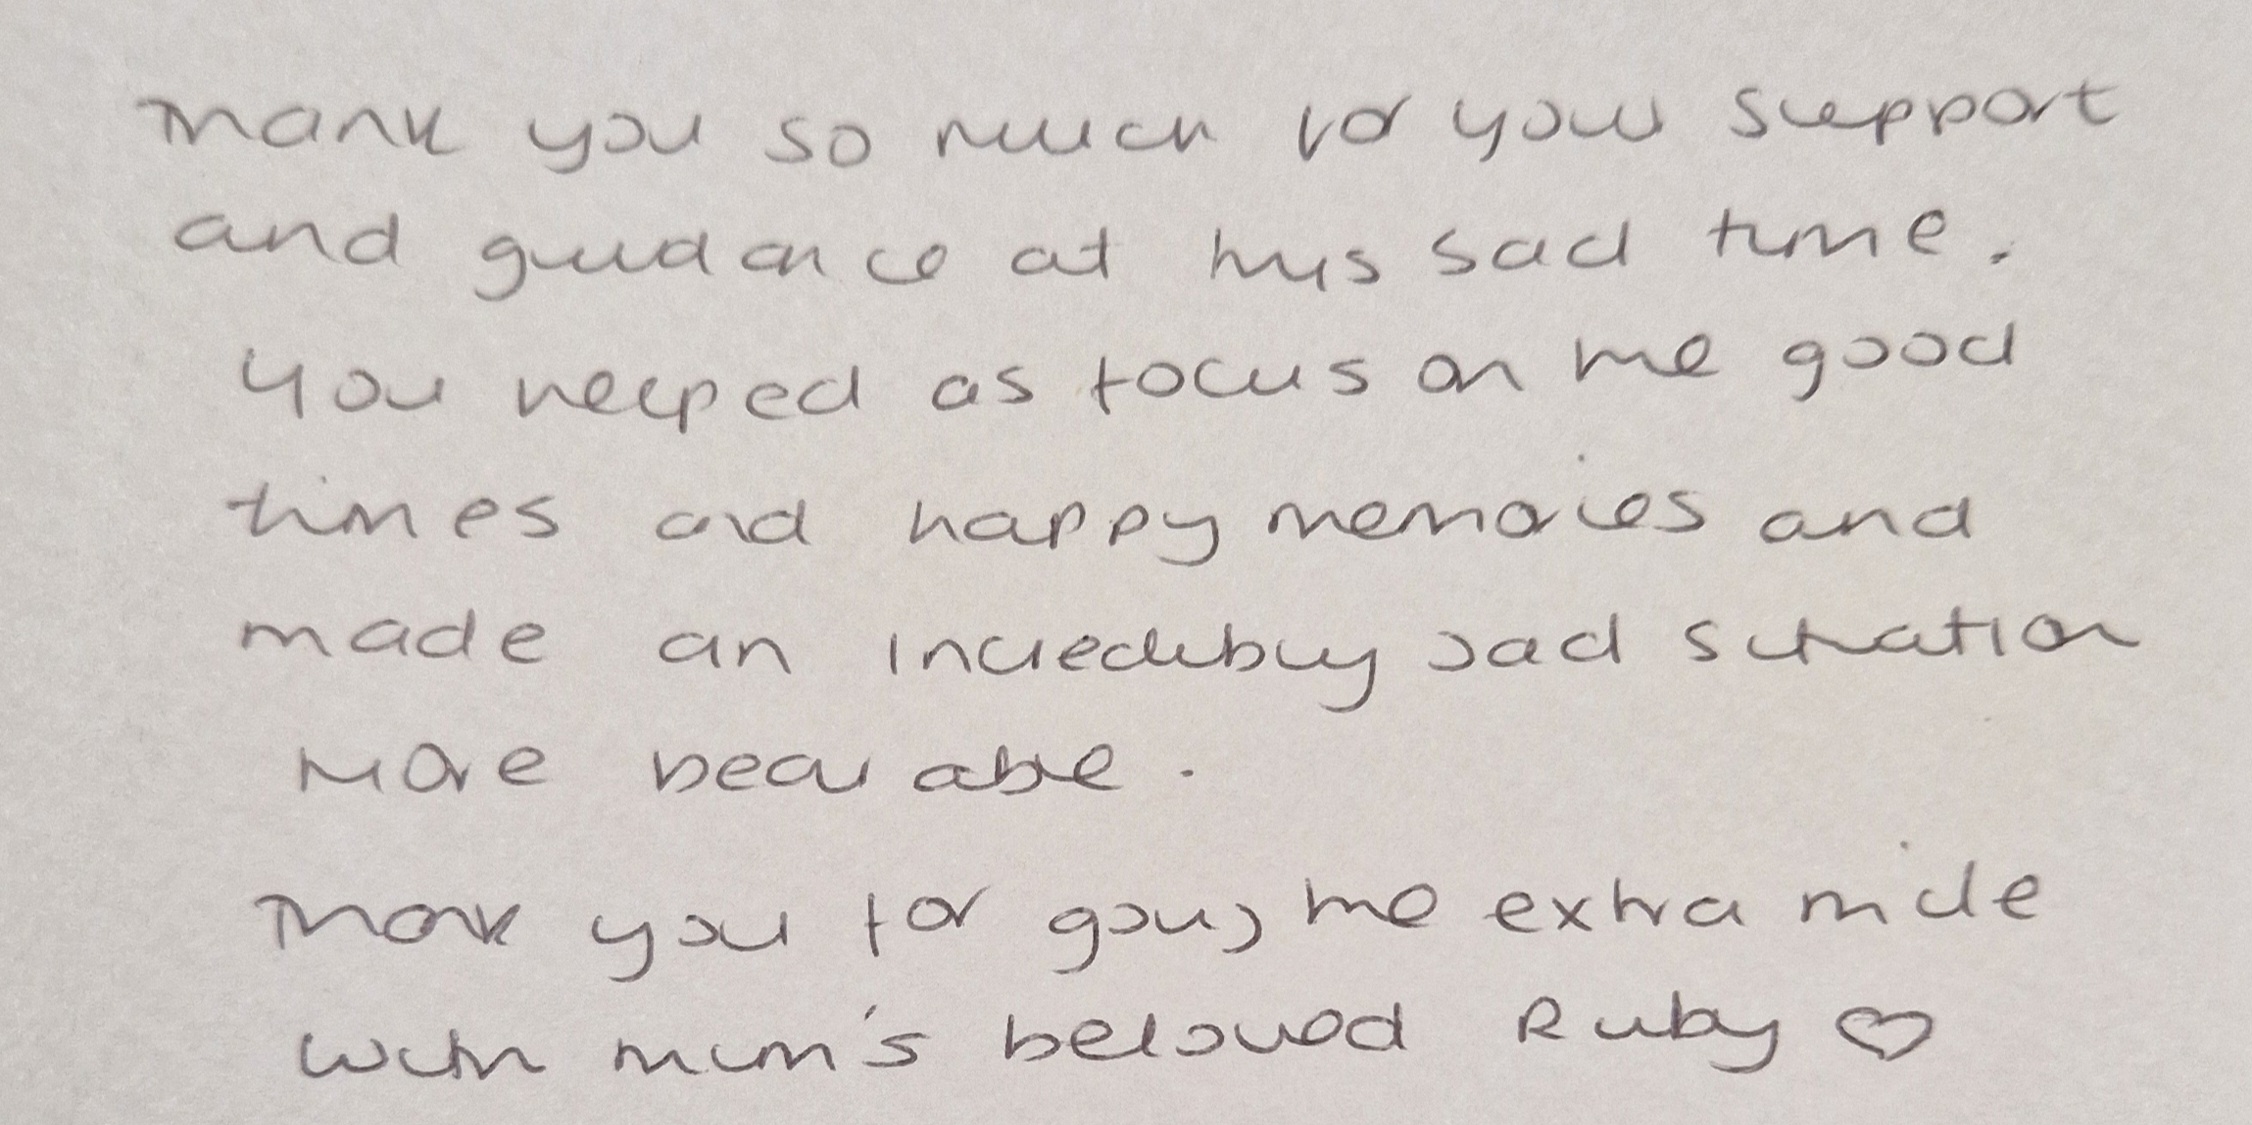 Thank you so much for your support
and guidance at this sad time.
You helped us focus on the good
times and happy memories and
made an incredibly sad situation
more bearable.
Thank you for going the extra mile
with mum's beloved Ruby ♡